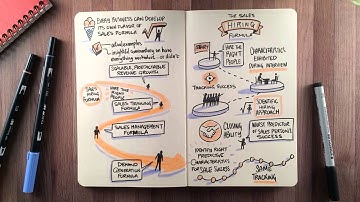 EVERY BUSINESS CAN DEVELOP
ITS OWN FLAVOR OF
SALES FORMULA
actual examples
insightful commentary on how
everything worked out... or didn't
SCALABLE, PREDICTABLE
REVENUE GROWTH
SALES
HIRING
FORMULA
HIRE THE
RIGHT
PEOPLE
SALES TRAINING
FORMULA
SALES MANAGEMENT
FORMULA
DEMAND
GENERATION
FORMULA
THE SALES
HIRING
FORMULA
START
HIRE THE
RIGHT
PEOPLE
CHARACTERISTICS
EXHIBITED
DURING INTERVIEW
TRACKING SUCCESS
SCIENTIFIC
HIRING APPROACH
CLOSING
ABILITY
WORST PREDICTOR
OF SALES PERSON'S
SUCCESS
IDENTIFY RIGHT
PREDICTIVE
CHARACTERISTICS
FOR SALES SUCCESS
SAME
TRACKING